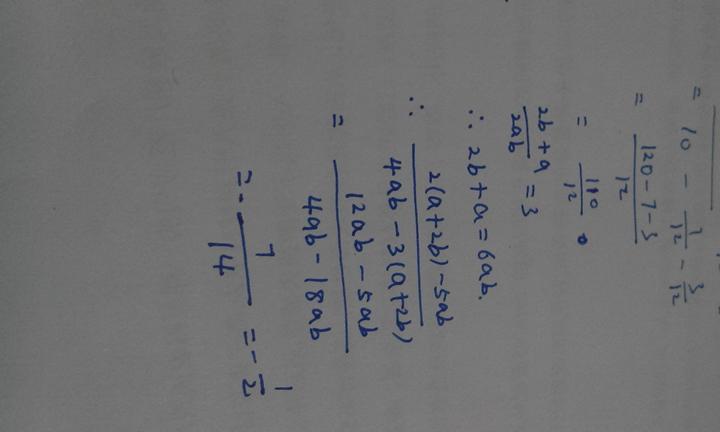 = 10 - 7/12 - 3/12
= (120-7-3)/12
= 110/12 。
(2b+a)/(2ab) = 3
∴ 2b+a=6ab.
∴ (2(a+2b)-5ab)/(4ab-3(a+2b))
= (12ab-5ab)/(4ab-18ab)
= - 7/14 = - 1/2